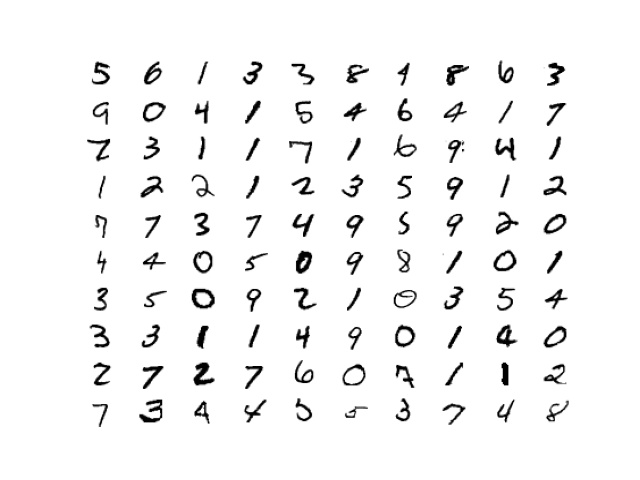 5 6 1 3 3 8 1 8 6 3
9 0 4 1 5 4 6 4 1 7
7 3 1 1 7 1 6 9 4 1
1 2 2 1 2 3 5 9 1 2
7 7 3 7 4 9 5 9 2 0
4 4 0 5 0 9 8 1 0 1
3 5 0 9 2 1 0 3 5 4
3 3 1 1 4 9 0 1 4 0
2 7 2 7 6 0 7 1 1 2
7 3 4 4 5 5 3 7 4 8